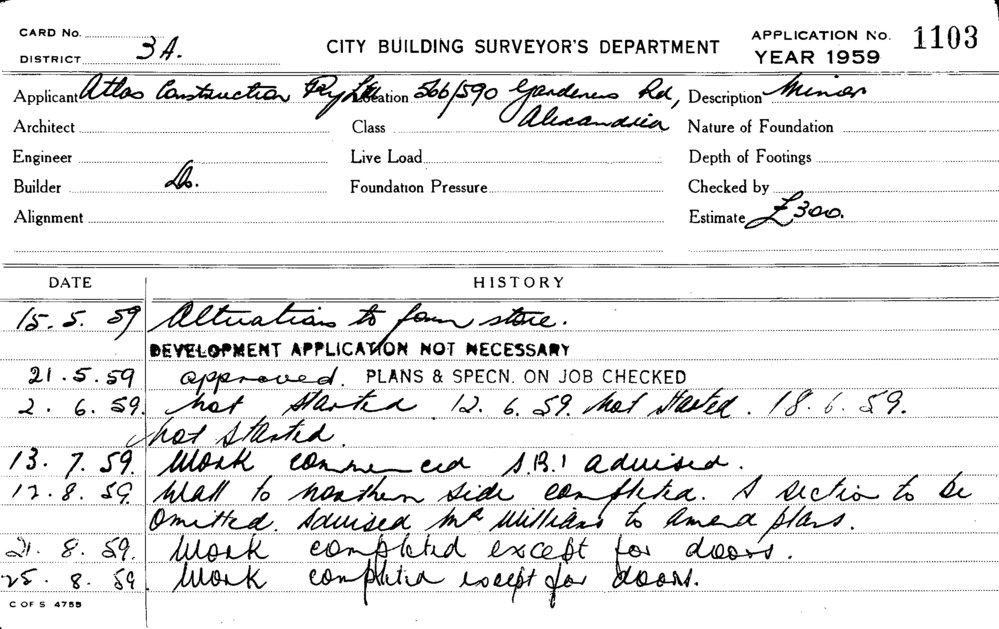 CARD No.
DISTRICT 3A.
CITY BUILDING SURVEYOR'S DEPARTMENT
APPLICATION No. 1103
YEAR 1959
Applicant Atlas Construction Pty Ltd Location 566/590 Gardeners Rd, Alexandria Description Minor
Architect Class Nature of Foundation
Engineer Live Load Depth of Footings
Builder Do. Foundation Pressure Checked by
Alignment Estimate £300.
DATE HISTORY
15.5.59 Alterations to form store.
DEVELOPMENT APPLICATION NOT NECESSARY
21.5.59 approved. PLANS & SPECN. ON JOB CHECKED
2.6.59. Not started. 12.6.59. Not started. 18.6.59.
Not started.
13.7.59. Work commenced advised.
12.8.59. Wall to northern side completed. A section to be
omitted. Advised Mr Williams to amend plans.
21.8.59. Work completed except for doors.
25.8.59 Work completed except for doors.
C OF S 4755